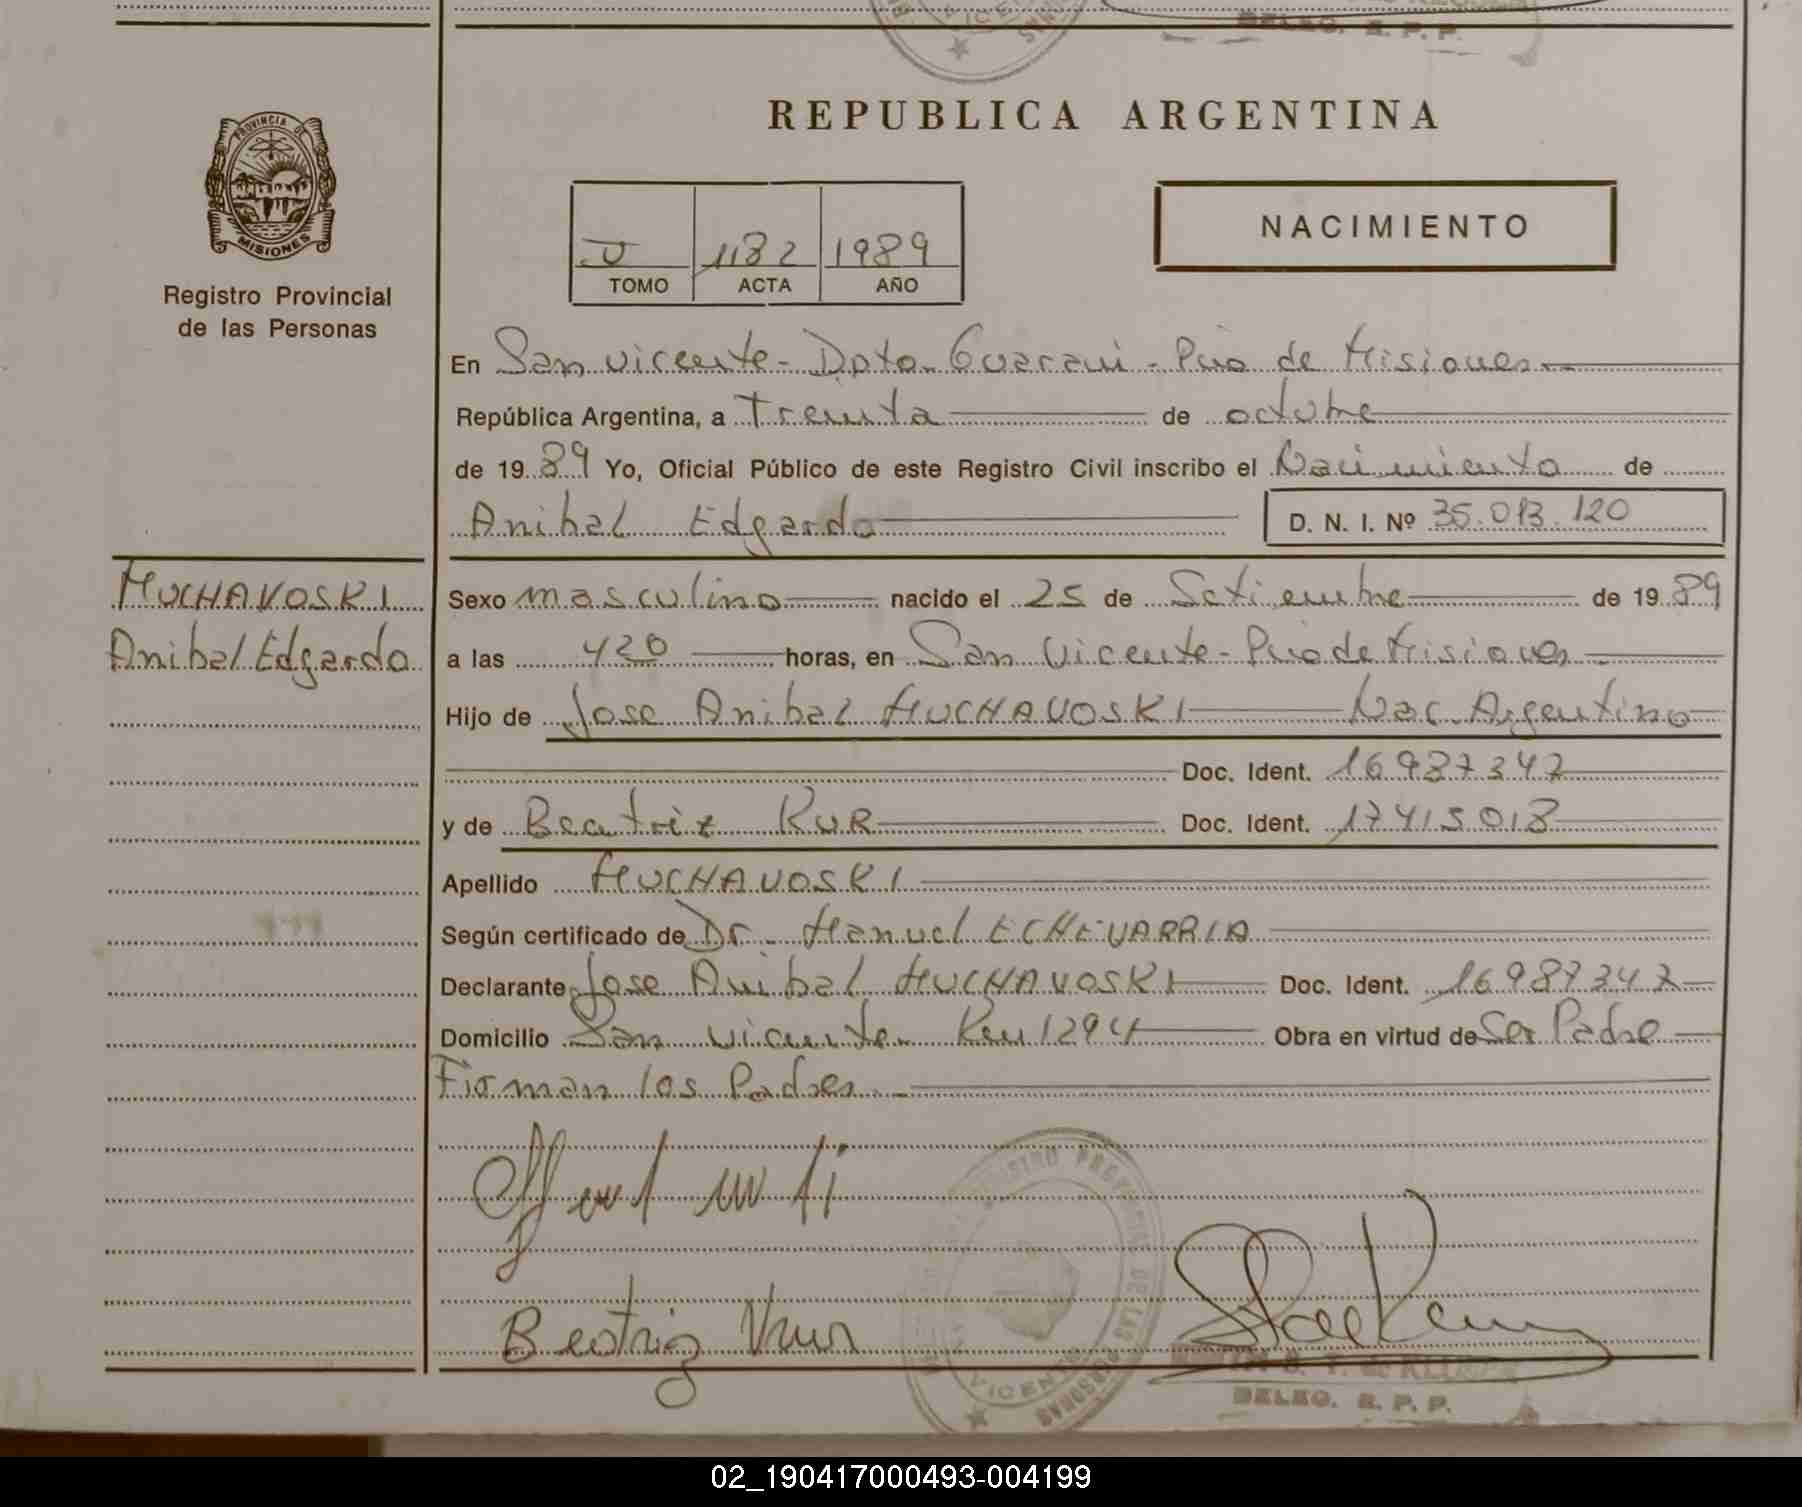 PROVINCIA DE
MISIONES
Registro Provincial
de las Personas
REPUBLICA ARGENTINA
NACIMIENTO
1182 1989
TOMO ACTA AÑO
En San Vicente - Dpto. Guarani - Pcia de Misiones
República Argentina, a Treinta de octubre
de 1989 Yo, Oficial Público de este Registro Civil inscribo el Nacimiento de
Anibal Edgardo D. N. I. Nº 35.013.120
MUCHAVOSKI
Anibal Edgardo
Sexo masculino nacido el 25 de Setiembre de 1989
a las 420 horas, en San Vicente - Pcia de Misiones
Hijo de Jose Anibal MUCHAVOSKI Nac. Argentino
Doc. Ident. 16987347
y de Beatriz KUR Doc. Ident. 17415018
Apellido MUCHAVOSKI
Según certificado de Dr. Manuel ECHEVARRIA
Declarante Jose Anibal MUCHAVOSKI Doc. Ident. 16987347
Domicilio San Vicente Km 1294 Obra en virtud de Ser Padre
Firman los Padres
Beatriz Kur
VICENTE
DELEG. R. P. P.
02_190417000493-004199